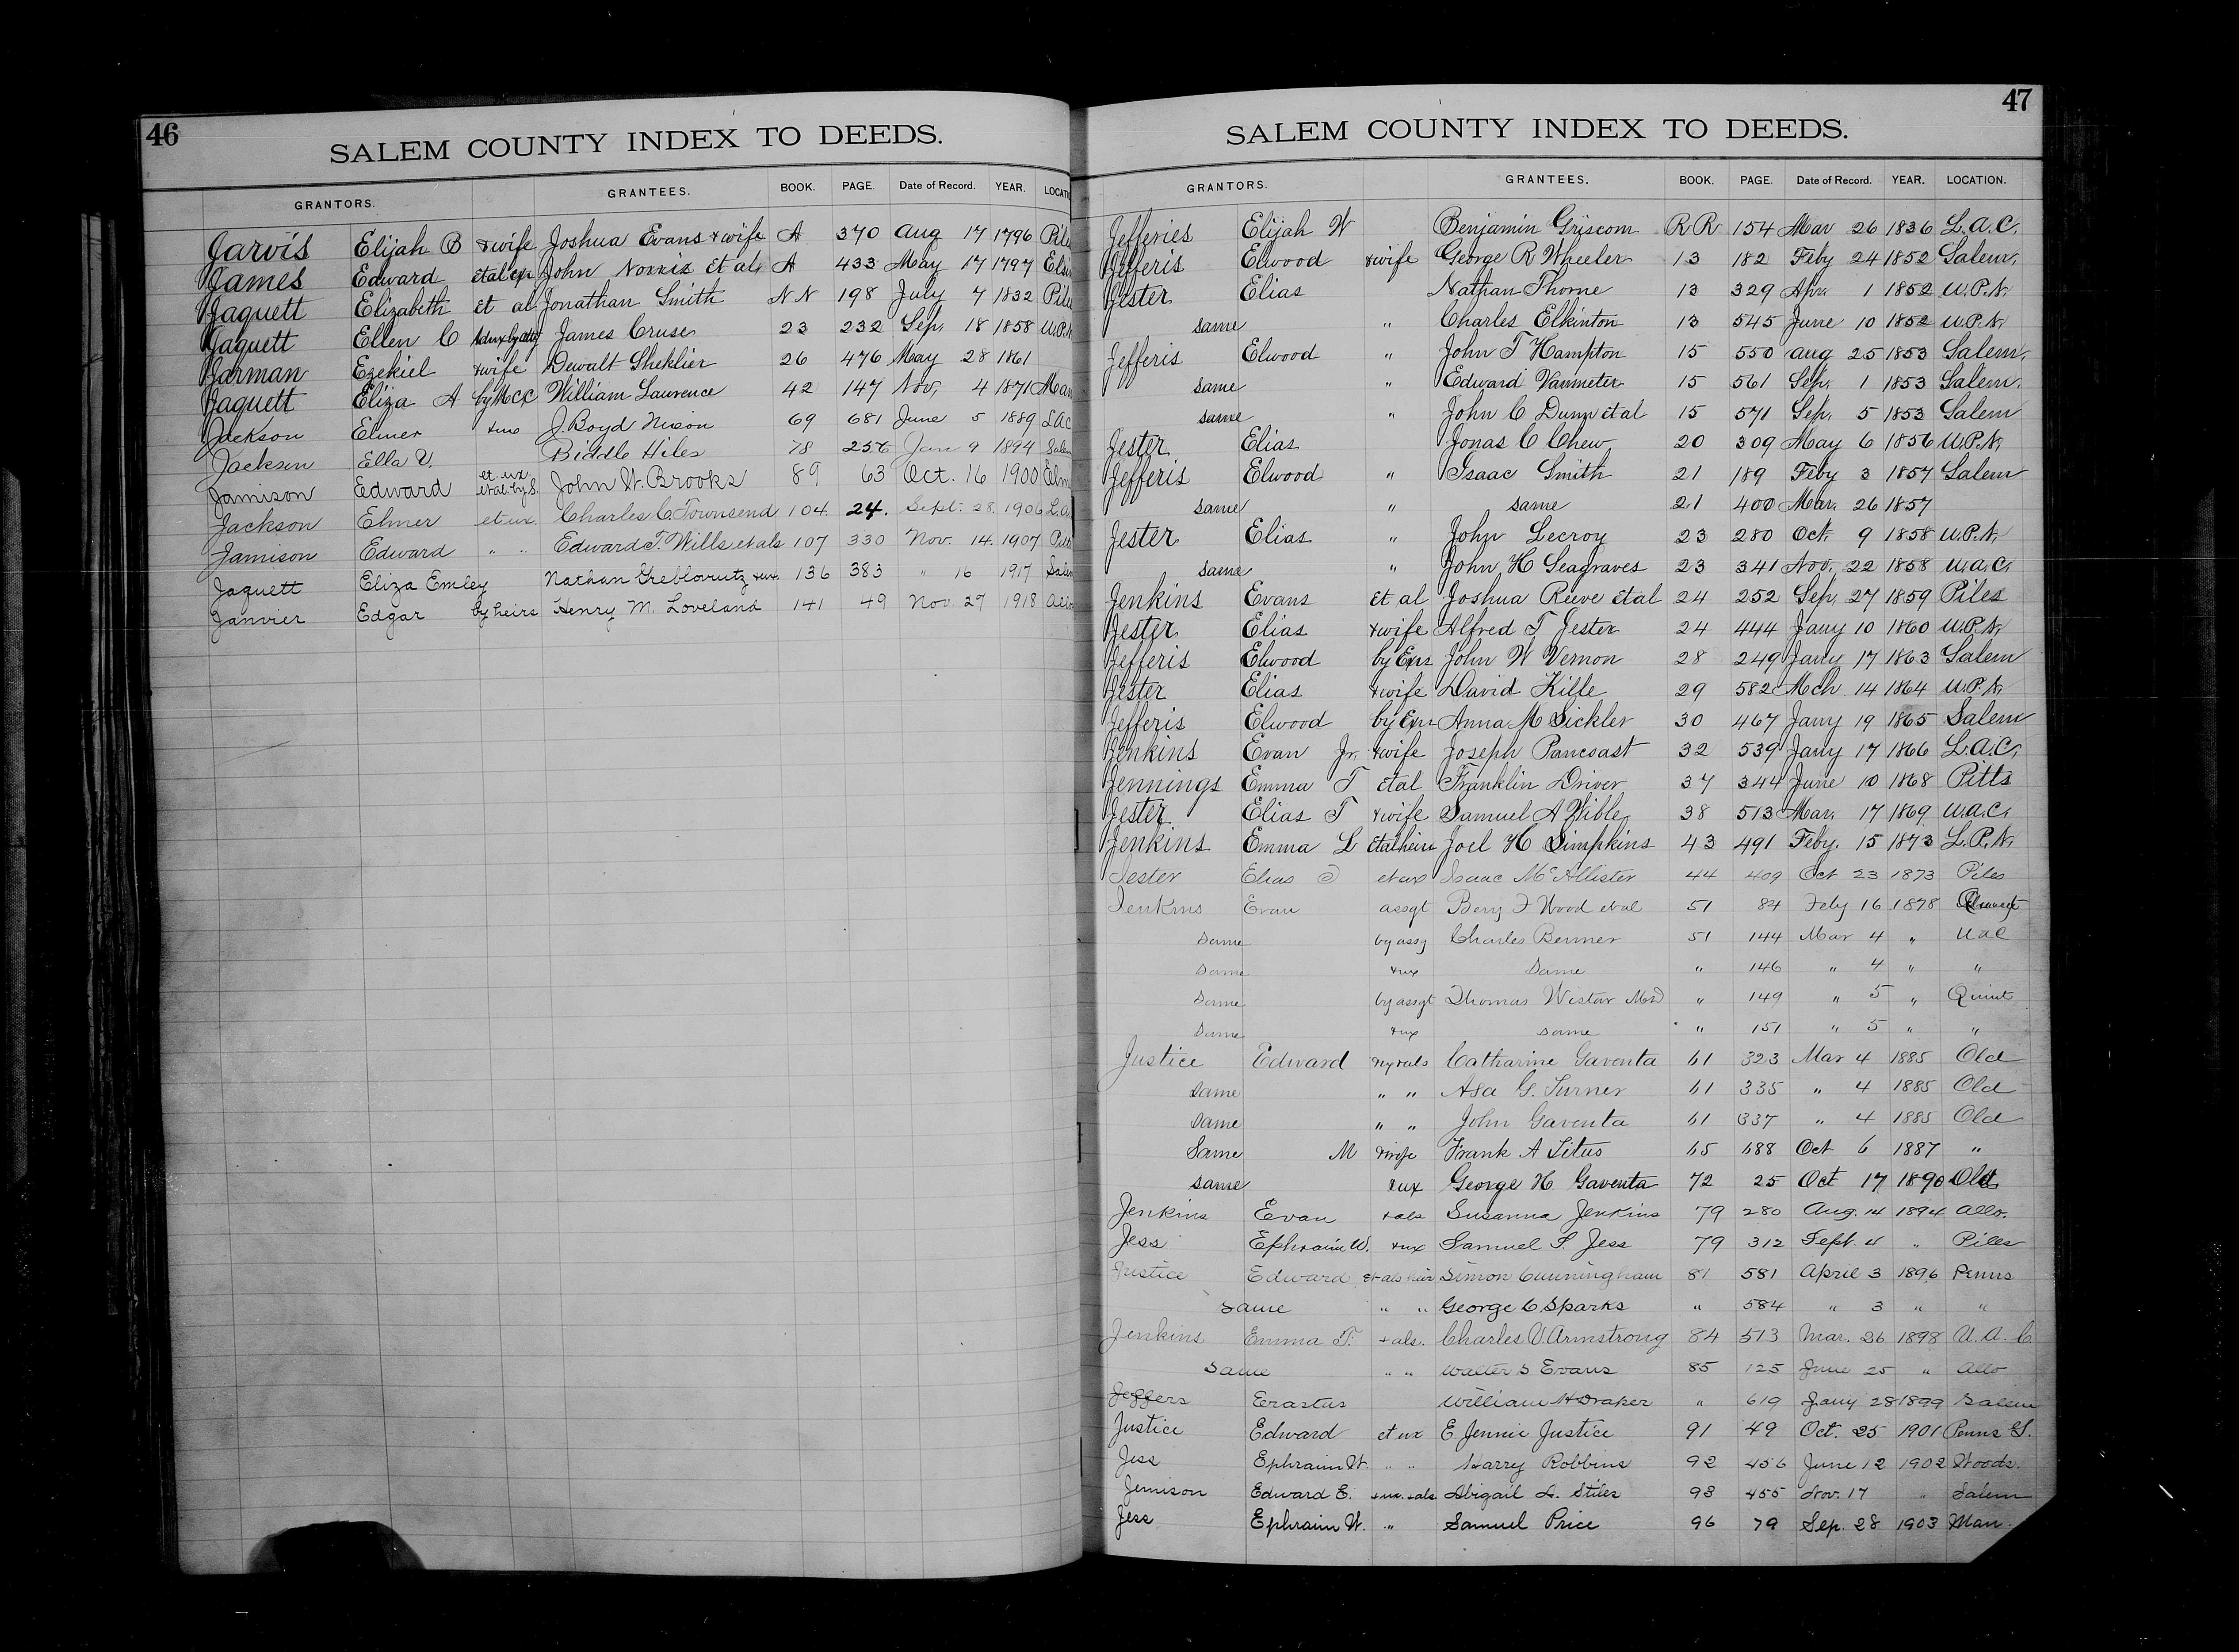 46
SALEM COUNTY INDEX TO DEEDS.
GRANTORS. GRANTEES. BOOK. PAGE. Date of Record. YEAR. LOCATI
Jarvis Elijah B &wife Joshua Evans &wife A 370 Aug 17 1796 Pile
James Edward et al John Norris et al A 433 May 17 1797 Elsi
Jaquett Elizabeth et al Jonathan Smith NN 198 July 7 1832 Pile
Jaquett Ellen C James Cruse 23 232 Sep. 18 1858 U.P.N
Jarman Ezekiel &wife Dewalt Sheklier 26 476 May 28 1861
Jaquett Eliza A by MCC William Laurence 42 147 Nov, 4 1871 Man
Jackson Elmer &ux J. Boyd Nixon 69 681 June 5 1889 LAC
Jackson Ella V. Biddle Hiles 78 256 Jan 9 1894 Salem
Jamison Edward et ux et al by S. John W. Brooks 89 63 Oct. 16 1900 Elm
Jackson Elmer et ux. Charles C. Townsend 104. 24. Sept. 28. 1906 L.A
Jamison Edward " " Edward T. Wills et als 107 330 Nov. 14. 1907 Pitts
Jaquett Eliza Emley Nathan Greblovutz &ux. 136 383 " 16 1917 Salem
Janvier Edgar by heirs Henry M. Loveland 141 49 Nov. 27 1918 Allo
47
SALEM COUNTY INDEX TO DEEDS.
GRANTORS. GRANTEES. BOOK. PAGE. Date of Record. YEAR. LOCATION.
Jefferies Elijah W Benjamin Griscom RR 154 Mar 26 1836 L.A.C.
Jefferis Elwood &wife George R Wheeler 13 182 Feby 24 1852 Salem,
Jester Elias Nathan Thorne 13 329 Apr. 1 1852 U.P.N,
same " Charles Elkinton 13 545 June 10 1852 U.P.N,
Jefferis Elwood " John T Hampton 15 550 Aug 25 1853 Salem,
same " Edward Vanmeter 15 561 Sep. 1 1853 Salem.
same " John C Dunn et al 15 571 Sep. 5 1853 Salem
Jester Elias Jonas C Chew 20 309 May 6 1856 U.P.N,
Jefferis Elwood " Isaac Smith 21 189 Feby 3 1857 Salem
same " same 21 400 Mar. 26 1857
Jester Elias " John Lecroy 23 280 Oct. 9 1858 U.P.N,
same " John H Seagraves 23 341 Nov. 22 1858 U.A.C,
Jenkins Evans et al Joshua Reeve et al 24 252 Sep. 27 1859 Piles
Jester Elias &wife Alfred T Jester 24 444 Jany 10 1860 U.P.N,
Jefferis Elwood by Exrs John W Vernon 28 249 Jany 17 1863 Salem
Jester Elias &wife David Kille 29 582 Mch 14 1864 U.P.N,
Jefferis Elwood by Exrs Anna M Sickler 30 467 Jany 19 1865 Salem
Jenkins Evan Jr. &wife Joseph Pancoast 32 539 Jany 17 1866 L.A.C,
Jennings Emma T et al Franklin Driver 37 344 June 10 1868 Pitts
Jester Elias T &wife Samuel A Wible 38 513 Mar. 17 1869 U.A.C,
Jenkins Emma L et al heirs Joel H Simpkins 43 491 Feby. 15 1873 L.P.N,
Jester Elias et ux Isaac McAllister 44 409 Oct 23 1873 Piles
Jenkins Evan assgt Benj F Wood et al 51 84 Feby 16 1878
Same by assg Charles Bermer 51 144 Mar 4 " UAC
Same &ux Same " 146 " 4 " "
Same by assgt Thomas Wistar " 149 " 5 " Quint
Same &ux same " 151 " 5 " "
Justice Edward Catharine Gaventa 61 323 Mar 4 1885 Old
Same " " Asa G. Turner 61 335 " 4 1885 Old
Same " " John Gaventa 61 337 " 4 1885 Old
Same M &wife Frank A Titus 65 688 Oct 6 1887 "
same &ux George H Gaventa 72 25 Oct 17 1890 Old
Jenkins Evan &als Susanna Jenkins 79 280 Aug. 14 1894 Allo.
Jess Ephraim W. &ux Samuel S. Jess 79 312 Sept. 4 " Piles
Justice Edward et als heir Simon Cunningham 81 581 April 3 1896 Penns
Same " " George C Sparks " 584 " 3 " "
Jenkins Emma T. &als. Charles V Armstrong 84 513 Mar. 26 1898 U.A.C
Same " " Walter S Evans 85 125 June 25 " Allo
Jeffers Erastus William H Draker " 619 Jany 28 1899 Salem
Justice Edward et ux E Jennie Justice 91 49 Oct. 25 1901 Penns G.
Jess Ephraim W. " " Harry Robbins 92 456 June 12 1902 Woods.
Jemison Edward E. &ux. &als Abigail A. Stiles 93 455 Nov. 17 " Salem
Jess Ephraim W. " Samuel Price 96 79 Sep. 28 1903 Man.